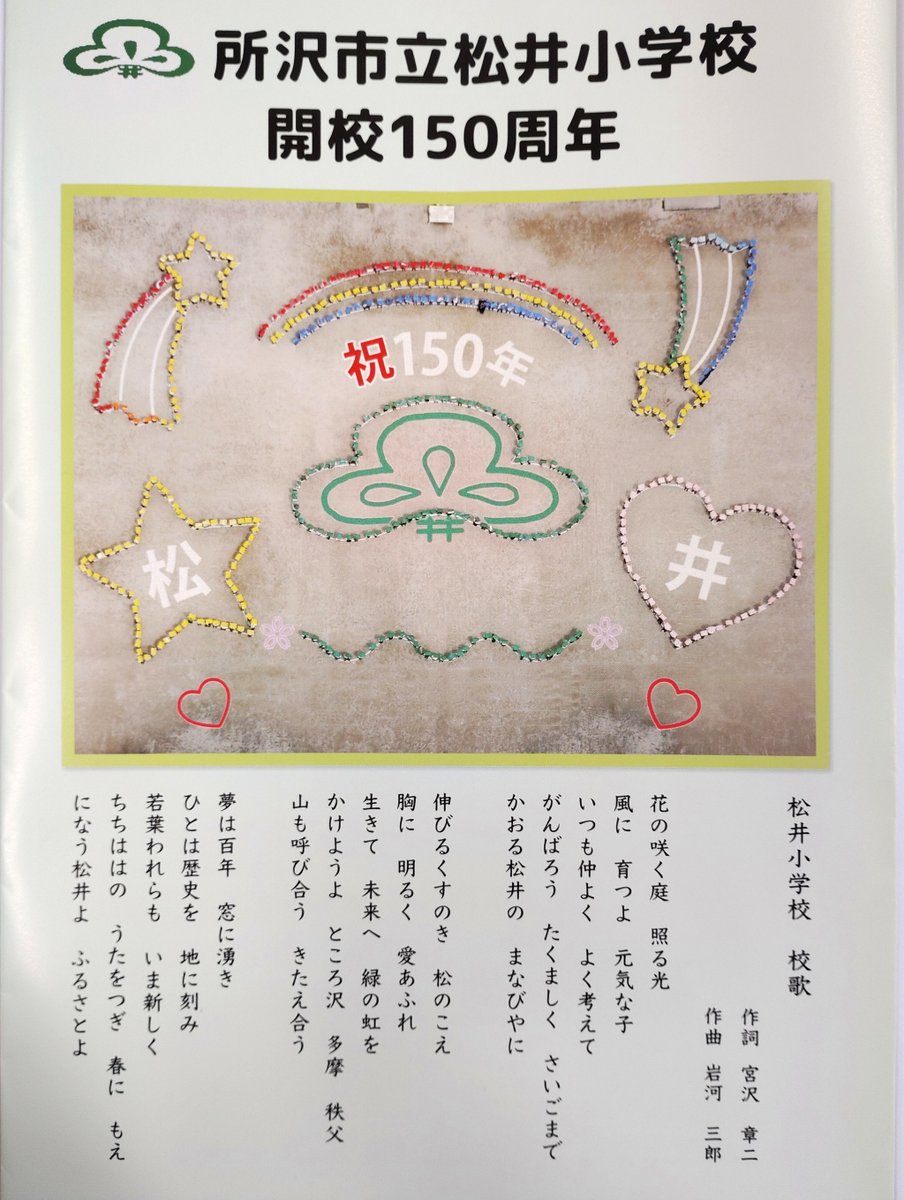 所沢市立松井小学校
開校150周年
祝150年
井
松
井
松井小学校 校歌
作詞 宮沢 章二
作曲 岩河 三郎
花の咲く庭 照る光
風に 育つよ 元気な子
いつも仲よく よく考えて
がんばろう たくましく さいごまで
かおる松井の まなびやに
伸びるくすのき 松のこえ
胸に 明るく 愛あふれ
生きて 未来へ 緑の虹を
かけようよ ところ沢 多摩 秩父
山も呼び合う きたえ合う
夢は百年 窓に湧き
ひとは歴史を 地に刻み
若葉われらも いま新しく
ちちははの うたをつぎ 春に もえ
になう松井よ ふるさとよ